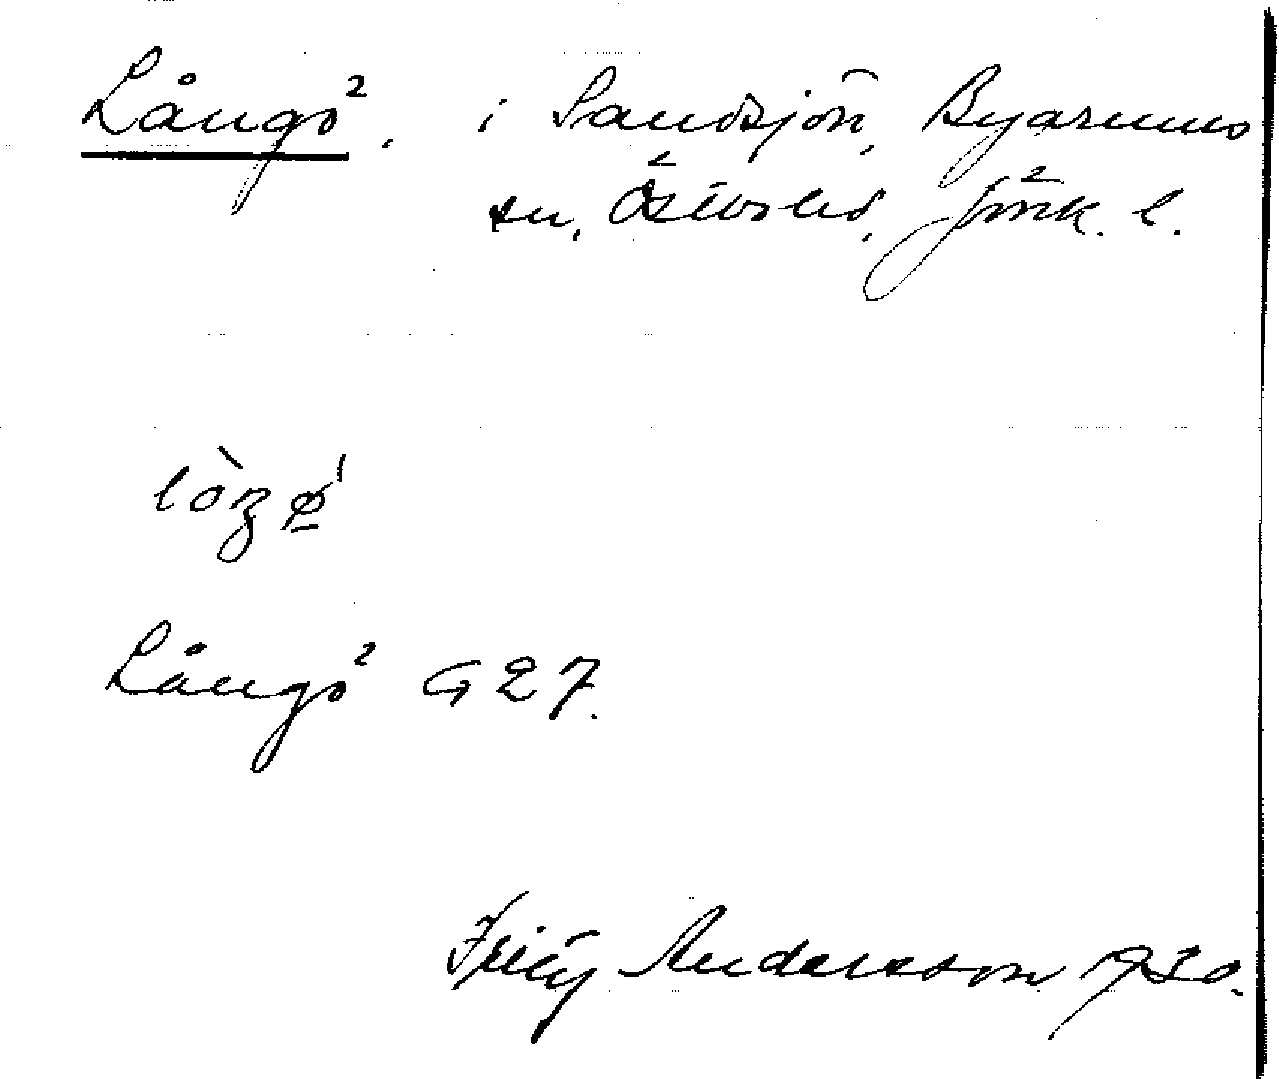 Långö, i Sandsjön, Byarums
sn, Östbo hd, Jönk. l.
Långö G 27.
Fritz Andersson 1930.